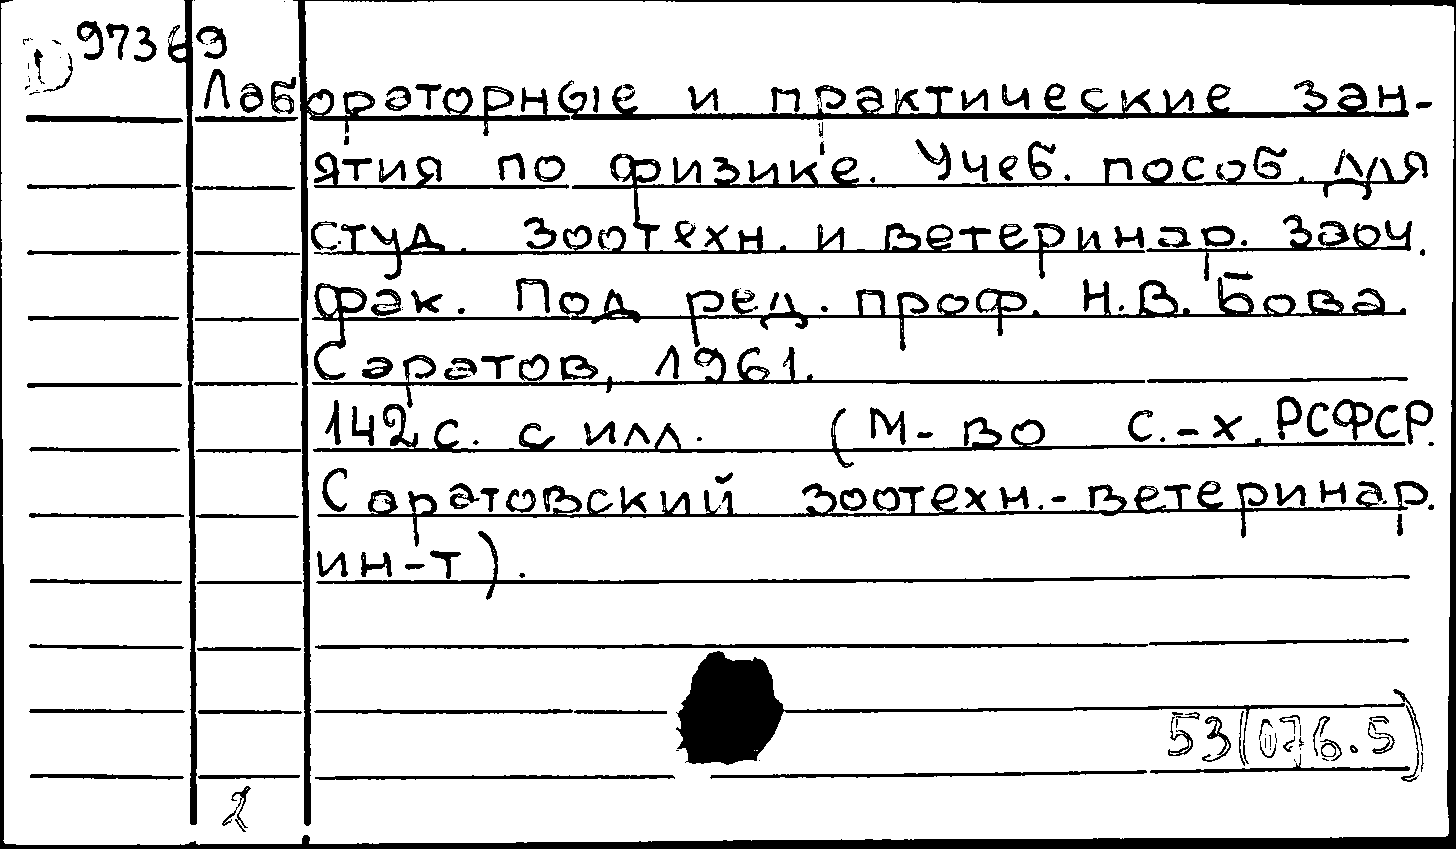 D 97369
Лабораторные и практические зан-
ятия по физике. Учеб. пособ. для
студ. зоотехн. и ветеринар. заоч.
фак. Под ред. проф. Н.В. Бова.
Саратов, 1961.
142 с. с илл. (М-во с.-х. РСФСР.
Саратовский зоотехн.-ветеринар.
ин-т).
53(076.5)
2